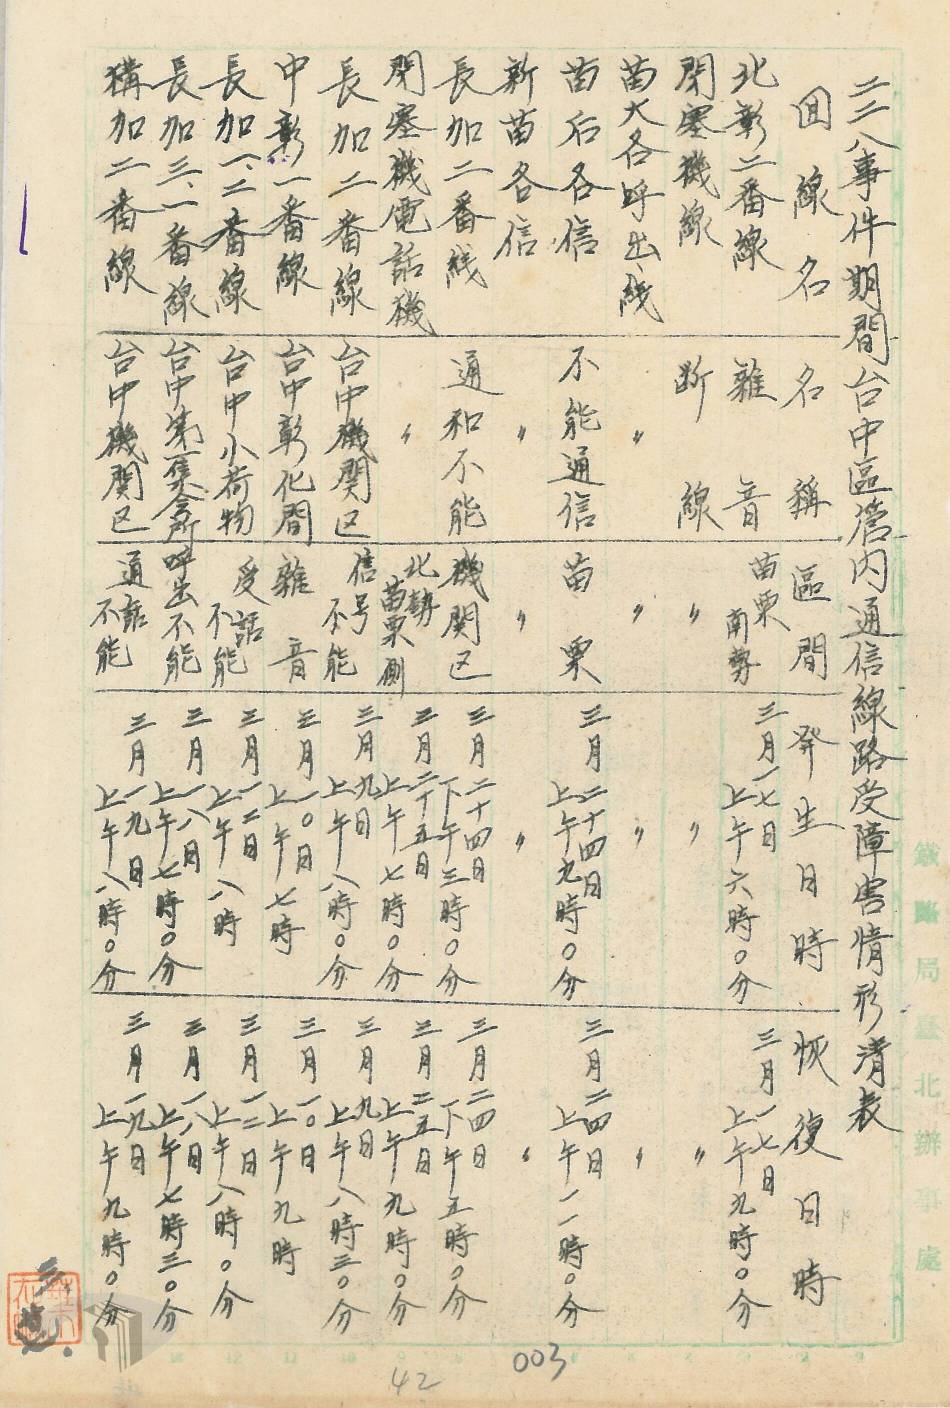 二二八事件期間台中區管內通信線路受障害情形清表
回線名 名稱 區間 發生日時 恢復日時
北彰二番線 雜音 苗栗南勢 三月一七日上午六時〇分 三月一七日上午九時〇分
閉塞機線 断線 〃 〃 〃
苗大各呼出線 〃 〃 〃 〃
苗后各信 不能通信 苗栗 三月二十四日上午九時〇分 三月二四日上午一一時〇分
新苗各信 〃 〃 〃 〃
長加二番线 通和不能 機関区 三月二十四日下午三時〇分 三月二四日下午五時〇分
閉塞機電話機 〃 北勢苗栗側 三月二十五日上午七時〇分 三月二五日上午九時〇分
長加二番線 台中機関区 信号不能 三月九日上午八時〇分 三月九日上午八時三〇分
中彰一番線 台中彰化間 雜音 三月一〇日上午七時 三月一〇日上午九時
長加一、二番線 台中小荷物 受話不能 三月一二日上午八時 三月一二日上午八時〇分
長加三、一番線 台中第一集会所 呼出不能 三月一八日上午七時〇分 三月一八日上午七時三〇分
構加二番線 台中機関区 通話不能 三月一九日上午八時〇分 三月一九日上午九時〇分
鐵路局臺北辦事處
003
42